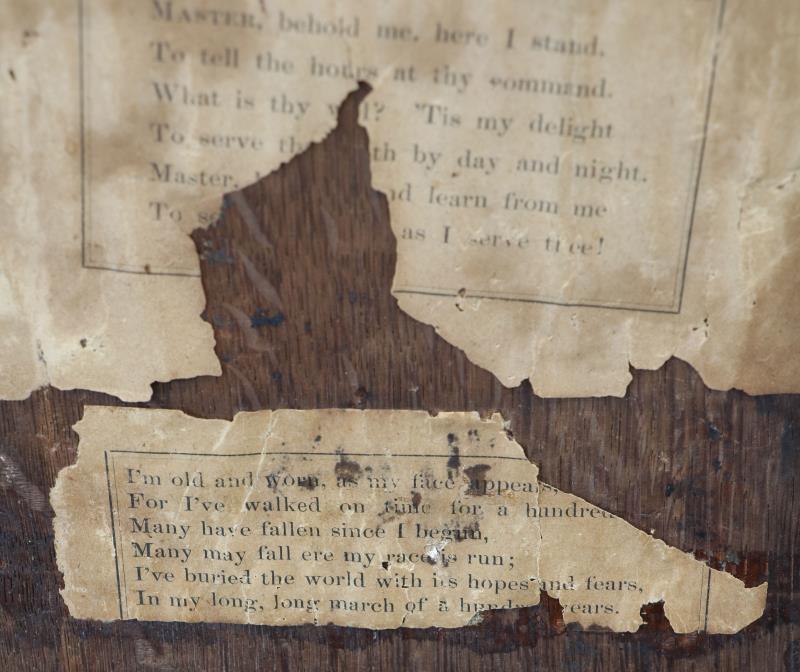 MASTER, behold me, here I stand,
To tell the hours at thy command.
What is thy 'Tis my delight
To serve by day and night.
Master, learn from me
To as I serve thee!
I'm old and worn, as my face appears,
For I've walked on time for a
Many have fallen since I begun,
Many may fall ere my race is run;
I've buried the world with its hopes and fears,
In my long, long march of a years.